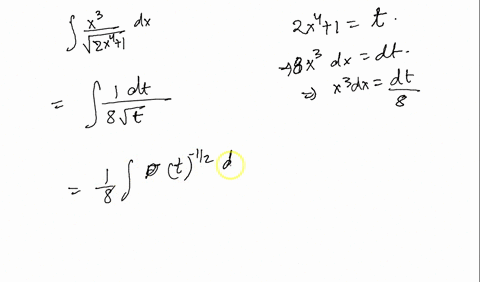 ∫ x³/√(2x⁴+1) dx
2x⁴+1 = t.
→ 8x³ dx = dt.
⇒ x³dx = dt/8
= ∫ 1 dt/(8√t)
= 1/8 ∫ (t)^(-1/2) d